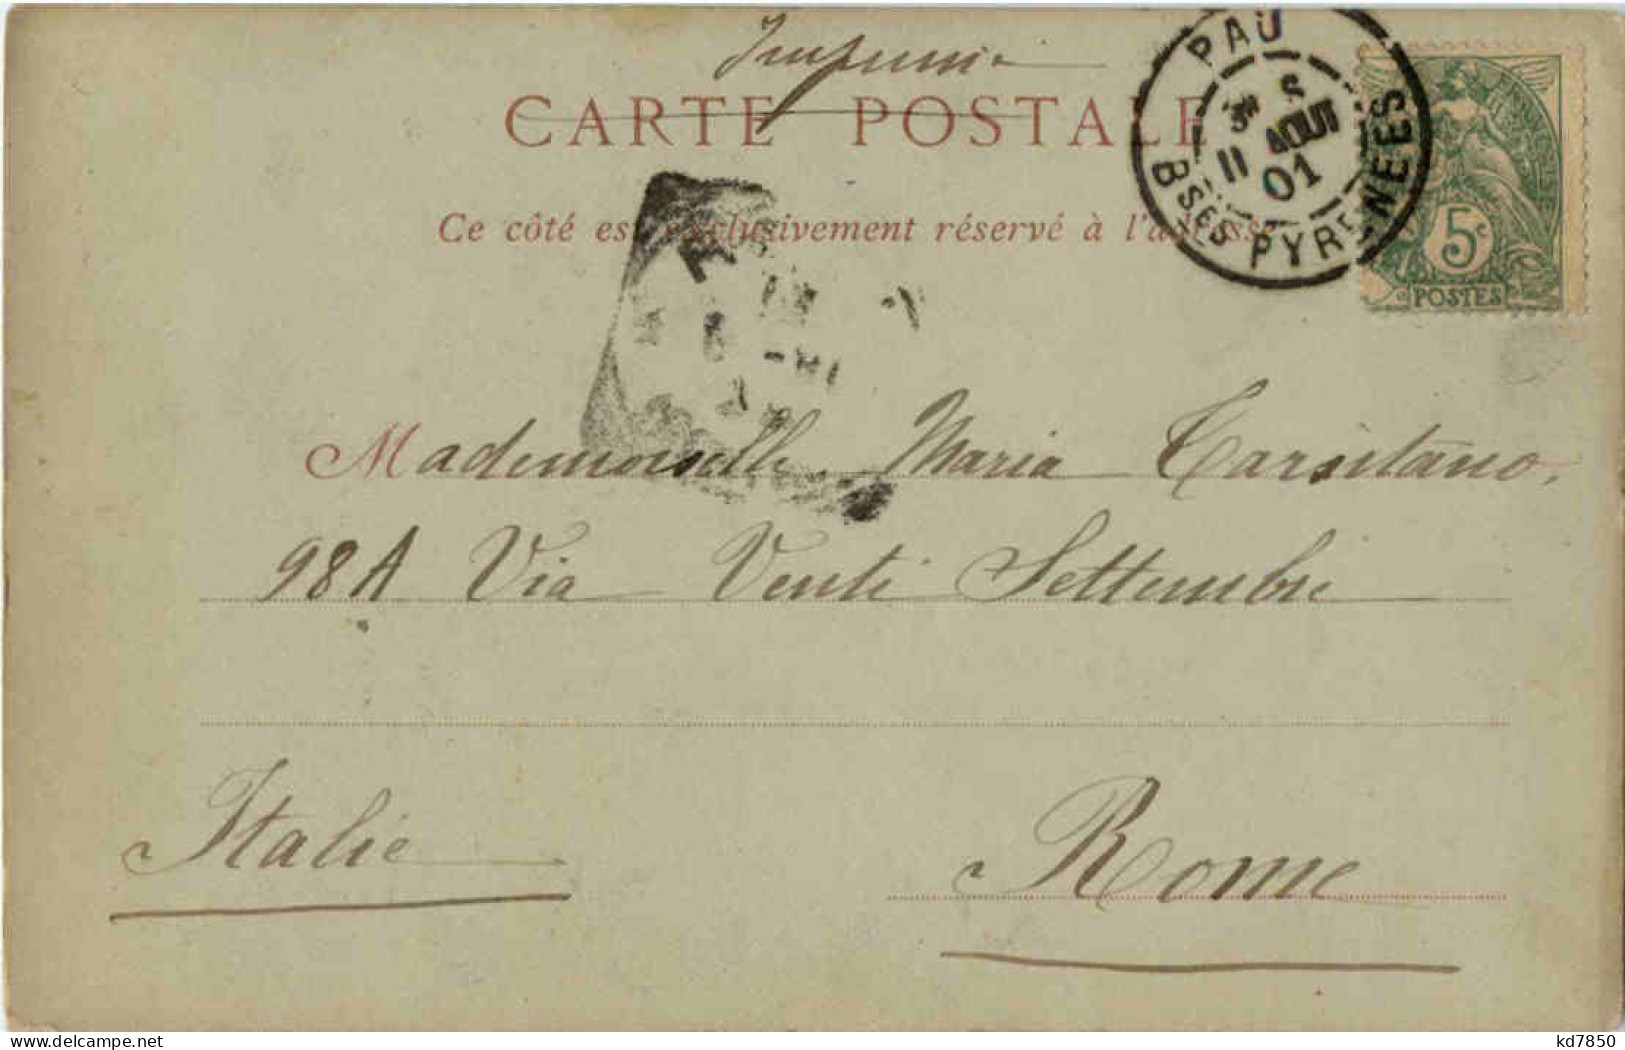 Imprimé
CARTE POSTALE
Ce côté est exclusivement réservé à l'adresse
PAU
11 AOUT
01
BSES PYRENEES
5c
POSTES
Mademoiselle Maria Tarsitano,
98A Via Venti Settembre
Italie
Rome
kd7850